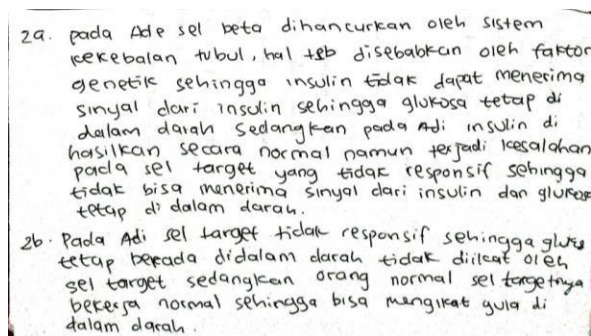 2a. pada Ade sel beta dihancurkan oleh sistem
kekebalan tubul, hal tsb disebabkan oleh faktor
genetik sehingga insulin tidak dapat menerima
sinyal dari insulin sehingga glukosa tetap di
dalam darah sedangkan pada Adi insulin di
hasilkan secara normal namun terjadi kesalahan
pada sel target yang tidak responsif sehingga
tidak bisa menerima sinyal dari insulin dan glukosa
tetap di dalam darah.
2b. Pada Adi sel target tidak responsif sehingga
tetap berada didalam darah tidak diikat oleh
sel target sedangkan orang normal sel targetnya
bekerja normal sehingga bisa mengikat gula di
dalam darah.